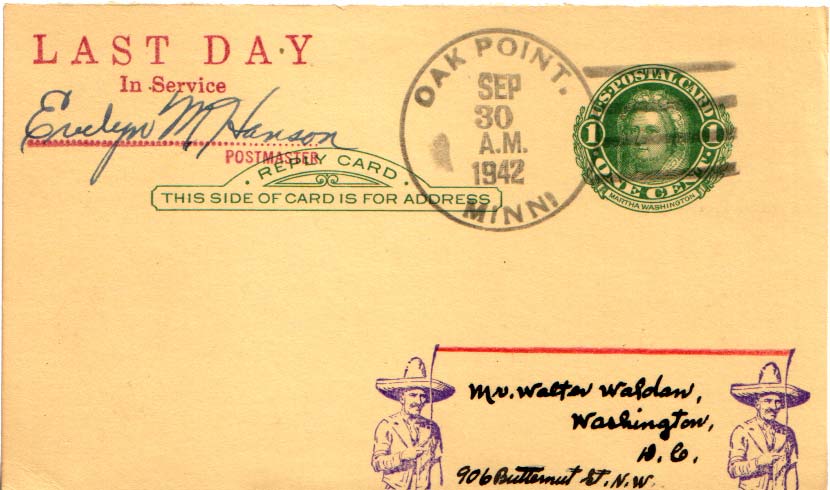 LAST DAY
In Service
Evelyn M Hanson
POSTMASTER
REPLY CARD
THIS SIDE OF CARD IS FOR ADDRESS
OAK POINT.
SEP
30
A.M.
1942
MINNI
U.S. POSTAL CARD
1 1
ONE CENT
MARTHA WASHINGTON
Mr. Walter Waldan,
Washington,
D.C.
906 Butternut St. N.W.